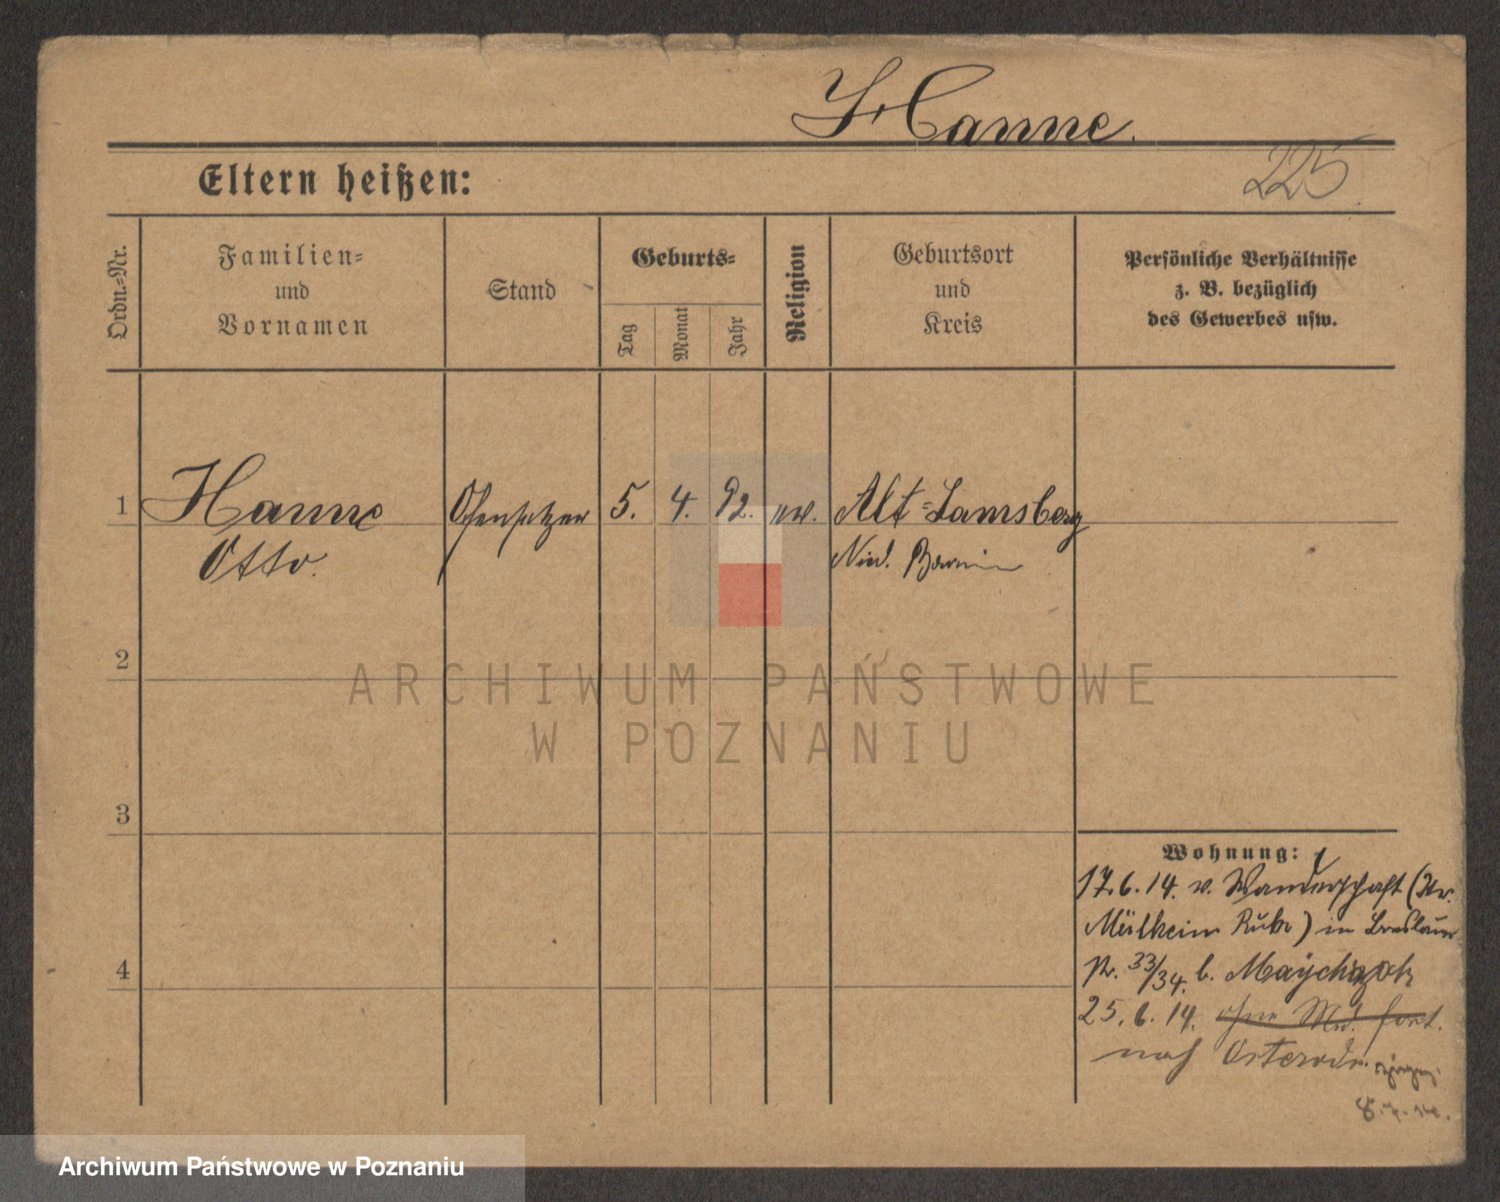 Hanne.
225
Eltern heißen:
Ordn.-Nr.
Familien- und Vornamen
Stand
Geburts-
Tag
Monat
Jahr
Religion
Geburtsort und Kreis
Persönliche Verhältnisse
z. B. bezüglich
des Gewerbes usw.
1 Hanne Ofensetzer 5. 4. 92. ev. Alt-Lamsberg
Otto. Nied. Barnim
2
3
4
Wohnung:
17.6.14. v. Wanderschaft (
Mülheim Ruhr) in Breslauer
Str. 33/34. b.
25.6.14. ohne Mld. fort.
nach Osterode.
8.7.14.
ARCHIWUM PAŃSTWOWE
W POZNANIU
Archiwum Państwowe w Poznaniu